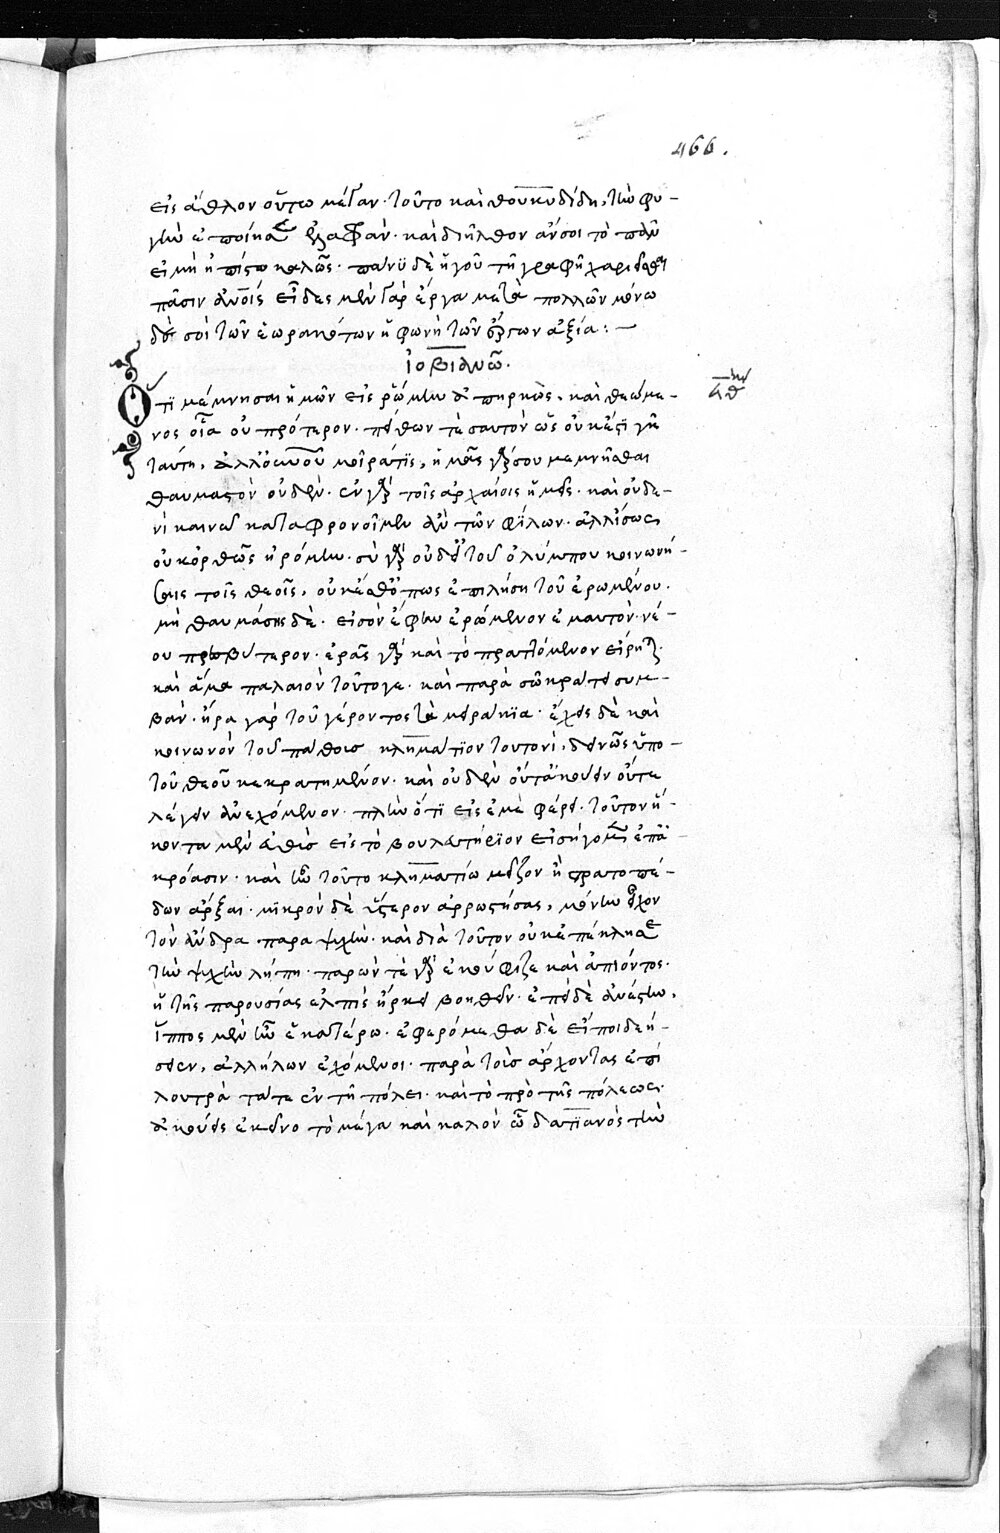 466.
εἰς ἆθλον οὕτω μέγαν. τοῦτο καὶ θουκυδίδη, τὴν φυ-
γὴν ἐποίησε στέφανον. καὶ διῆλθον ἄν σοι τὸ πολὺ
εἰ μὴ ἠπίστω καλῶς. πάνυ δὲ ἡγοῦ τῇ γραφῇ χαριεῖσθαι
πᾶσιν ἀνοις εἶδες μὲν γὰρ ἔργα μετὰ πολλῶν μόνω
δέ σοι τῶν ἑωρακότων ἡ φωνὴ τῶν ἔργων ἀξία:
ἰοβιανῶ.
Ὅτι μέμνησαι ἡμῶν εἰς ῥώμην ἀπηρκὼς, καὶ θεώμε-
νος οἷα οὐ πρότερον. πείθων τε σαυτὸν ὡς οὐκ ἔστι γῆ
ταύτη, ἀλλ' οὐνοῦ μοῖρά τις, ἡμᾶς γάρ σου μεμνῆσθαι
θαυμαστὸν οὐδὲν. ἐν γὰρ τοῖς ἀρχαίοις ἡμεῖς. καὶ οὐδε-
νὶ καινῶ καταφρονοῖμεν ἂν τῶν φίλων. ἀλλ' ἴσως
οὐκ ὀρθῶς ἠρόμην. σὺ γὰρ οὐδ' εἰ τοῦ ὀλύμπου κοινωνή-
σεις τοῖς θεοῖς, οὐκ ἔσθ' ὅπως ἐπιλήση τοῦ ἐρωμένου.
μὴ θαυμάσης δὲ. εἰ σὸν ἔφην ἐρώμενον ἐμαυτὸν. νέ-
ου πρεσβύτερον. ἐρᾷς γὰρ καὶ τὸ πραττόμενον εἴρηται.
καὶ ἅμα παλαιὸν τοῦτό γε. καὶ παρὰ σωκράτει συμ-
βὰν. ἤρα γὰρ τοῦ γέροντος τὰ μειράκια. ἔχεις δὲ καὶ
κοινωνὸν τοῦ πάθους κλημάτιον τουτονὶ, δεινῶς ὑπὸ
τοῦ θεοῦ κεκρατημένον. καὶ οὐδὲν οὔτ' ἀκούειν οὔτε
λέγειν ἀνεχόμενον. πλὴν ὅτι εἰς ἐμὲ φέρει. τοῦτον ἥ-
κοντα μὲν εὐθὺς εἰς τὸ βουλευτήριον εἰσήγομεν ἐπ' ἀ-
κρόασιν. καὶ ἦν τοῦτο κληματίω μεῖζον ἢ στρατοπέ-
δων ἄρξαι. μικρὸν δὲ ὕστερον ἀρρωστήσας, μόνην εἶχον
τὸν ἄνδρα παραψυχὴν. καὶ διὰ τοῦτον οὐκ ἐπέκλυσε
τὴν ψυχὴν λύπη. παρών τε γὰρ ἐκούφιζε καὶ ἀπιόντος.
ἡ τῆς παρουσίας ἐλπὶς ἤρκει βοηθεῖν. ἐπεὶ δὲ ἀνέστην,
ἵππος μὲν ἦν ἑκατέρω. ἐφερόμεθα δὲ εἴ ποι δεή-
σειεν, ἀλλήλων ἐχόμενοι. παρὰ τοὺς ἄρχοντας ἐπὶ
λουτρά τά τε ἐν τῇ πόλει. καὶ τὸ πρὸ τῆς πόλεως.
ἀκούεις ἐκεῖνο τὸ μέγα καὶ καλὸν ὧ δατιανὸς τὴν